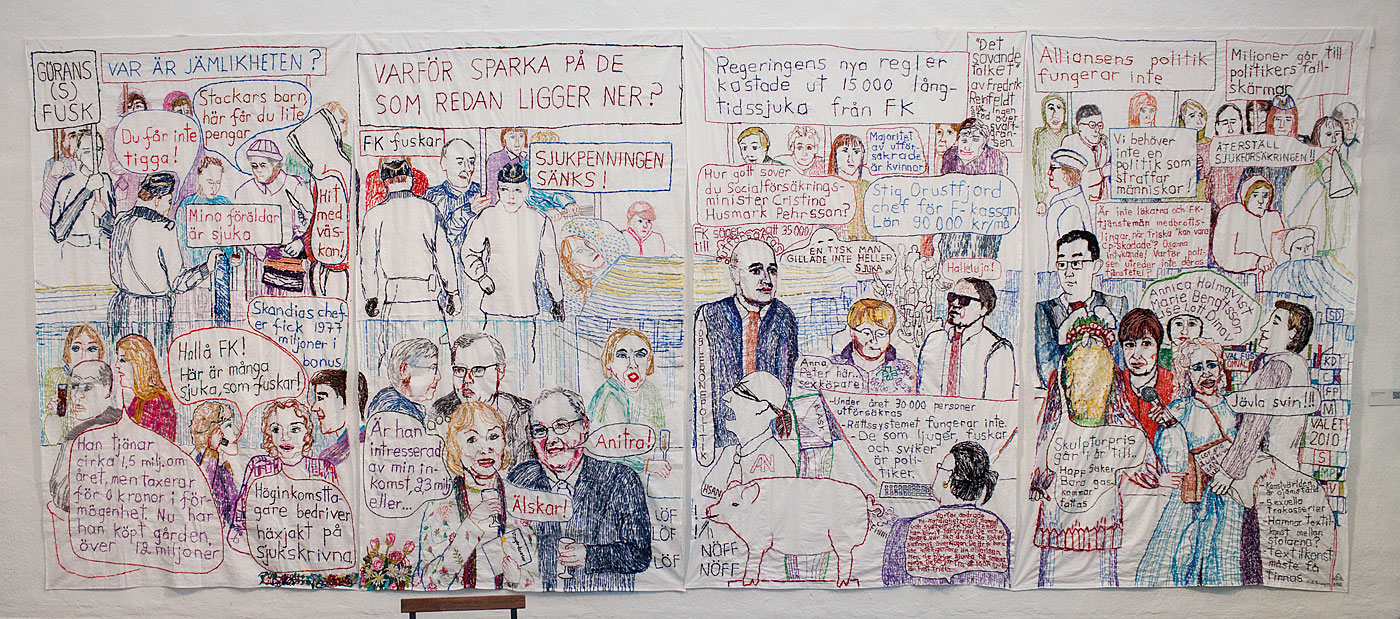 GÖRANS
(S)
FUSK
VAR ÄR JÄMLIKHETEN?
Du får inte
tigga!
Stackars barn,
här får du lite
pengar
Mina föräldar
är sjuka
Hit
med
väs-
kan!
Skandias chef
er fick 1977
miljoner i
bonus
Hallå FK!
Här är många
sjuka, som fuskar!
Han tjänar
cirka 1,5 milj. om
året, men taxerar
för 0 kronor i för-
mögenhet. Nu har
han köpt gården,
över 12 miljoner
Höginkomstta-
gare bedriver
häxjakt på
sjukskrivna
VARFÖR SPARKA PÅ DE
SOM REDAN LIGGER NER?
FK fuskar
SJUKPENNINGEN
SÄNKS!
Är han
intresserad
av min in-
komst, 23 milj
eller...
Anitra!
Älskar!
LÖF
LÖF
LÖF
Regeringens nya regler
kastade ut 15 000 lång-
tidssjuka från FK
"Det
sovande
folket"
av Fredrik
Reinfeldt
Majoritet
av utför-
säkrade
är kvinnor
Hur gott sover
du Socialförsäkrings-
minister Cristina
Husmark Pehrsson?
Stig Orustfjord
chef för F-kassan
Lön 90 000 kr/må
FK
till
35 000/
EN TYSK MAN
GILLADE INTE HELLER
SJUKA
Halleluja!
Anna,
Peter här...
sexköpare!
-Under året 90 000 personer
utförsäkras
-Rättssystemet fungerar inte.
-De som ljuger, fuskar
och sviker
är poli-
tiker.
HSAN
NÖFF
NÖFF
Alliansens politik
fungerar inte
Miljoner går till
politikers fall-
skärmar
Vi behöver
inte en
politik som
straffar
människor!
ÅTERSTÄLL
SJUKFÖRSÄKRINGEN!!
Är inte läkarna och FK-
tjänstemän medbrotts-
lingar, när friska "kan vara
Cp-skadade"? Osanna
intyganden! Varför poli-
sen utreder inte deras
tjänstefel?
Annica Holmqvist
Marie Bengtsson
Lise-Lott Dina!
Jävla svin!!!
SD
KD
C
FP
M
VALET
2010
S
MP
V
Skulpturpris
går i år till..
Hopp Saker
Bara gos-
kammar
fattas
Konstvärlden
är ojämställd
Sexuella
trakasserier
Hamnar Textil-
konst mellan
stolarna?
textilkonst
måste få
finnas